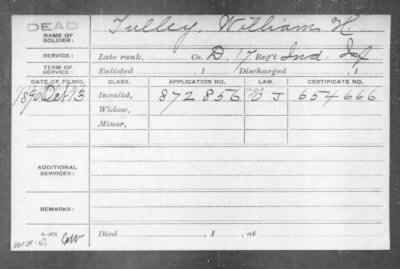 DEAD
NAME OF SOLDIER: Tulley, William H
SERVICE: Late rank, Co. D, 17 Reg't Ind. Inf
TERM OF SERVICE: Enlisted , 1 Discharged , 1
DATE OF FILING. CLASS. APPLICATION NO. LAW. CERTIFICATE NO.
1890 Oct 13 Invalid, 872856 G J 654666
Widow,
Minor,
ADDITIONAL SERVICES:
REMARKS:
Died , 1 , at